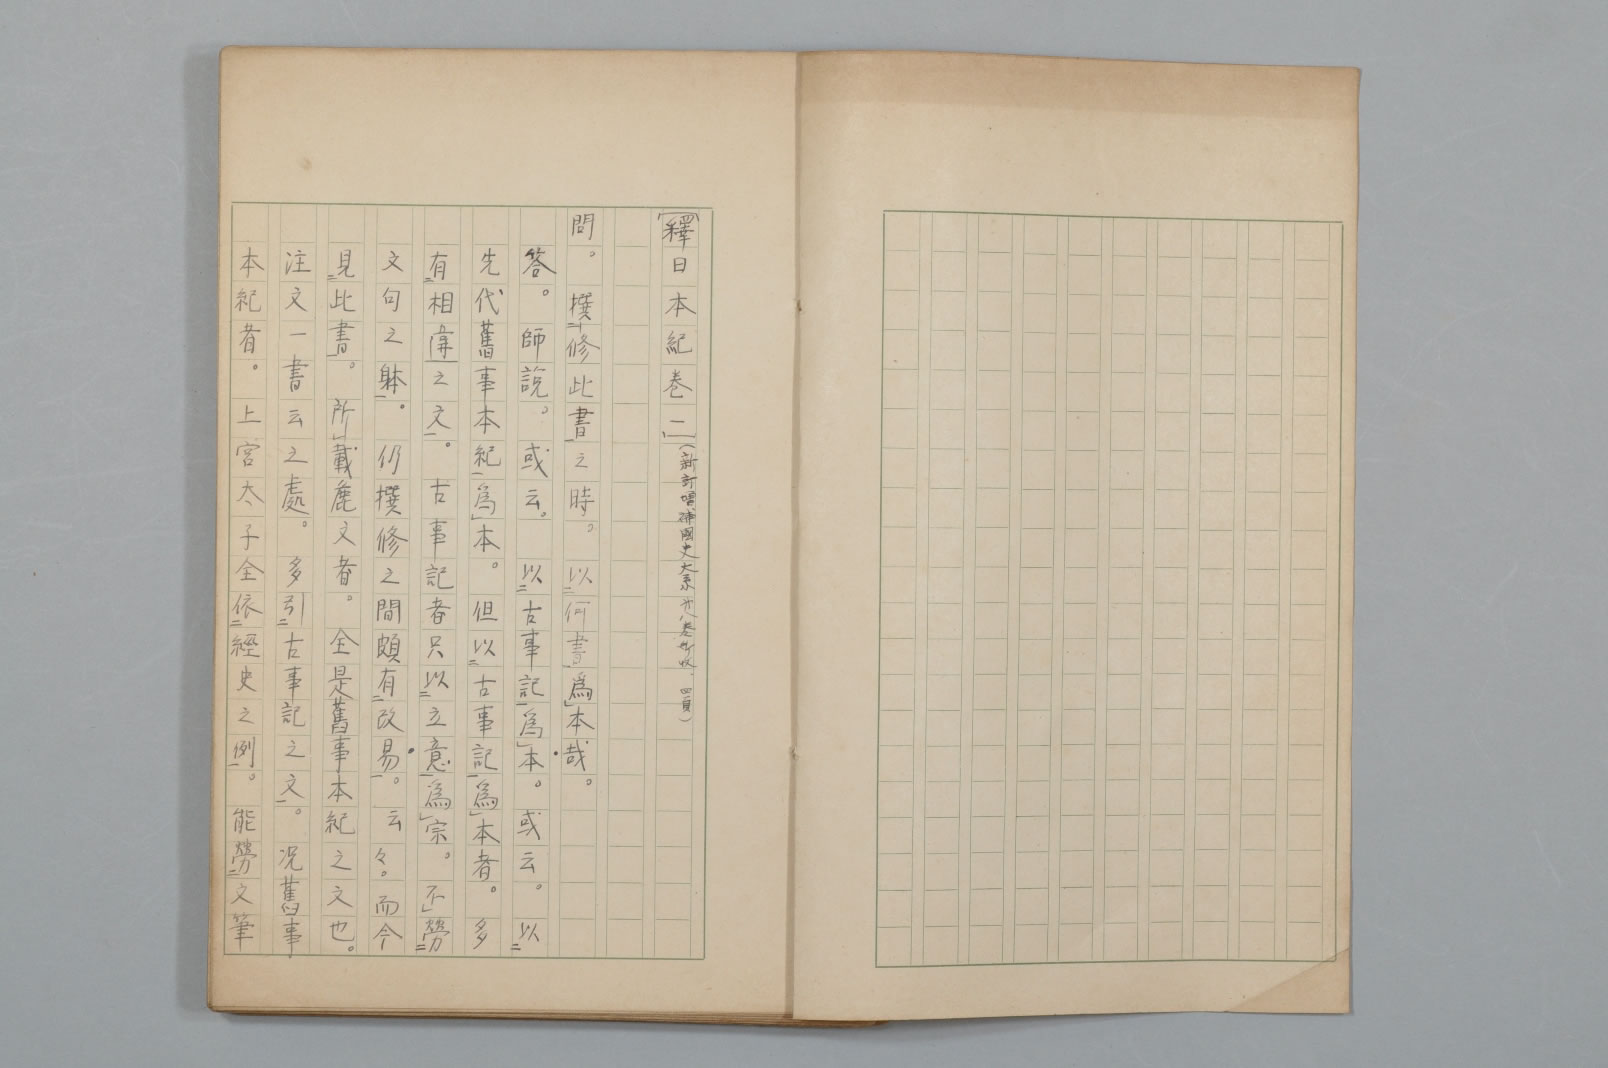 「釋日本紀卷二」(新訂增補國史大系第八卷所收、四頁)
問。撰修此書之時。以何書爲本哉。
答。師說。或云。以古事記爲本。或云。以
先代舊事本紀爲本。但以古事記爲本者。多
有相違之文。古事記者只以立意爲宗。不勞
文句之躰。仍撰修之間頗有改易。云々。而今
見此書。所載麁文者。全是舊事本紀之文也。
注文一書云之處。多引古事記之文。况舊事
本紀者。上宮太子全依經史之例。能勞文筆